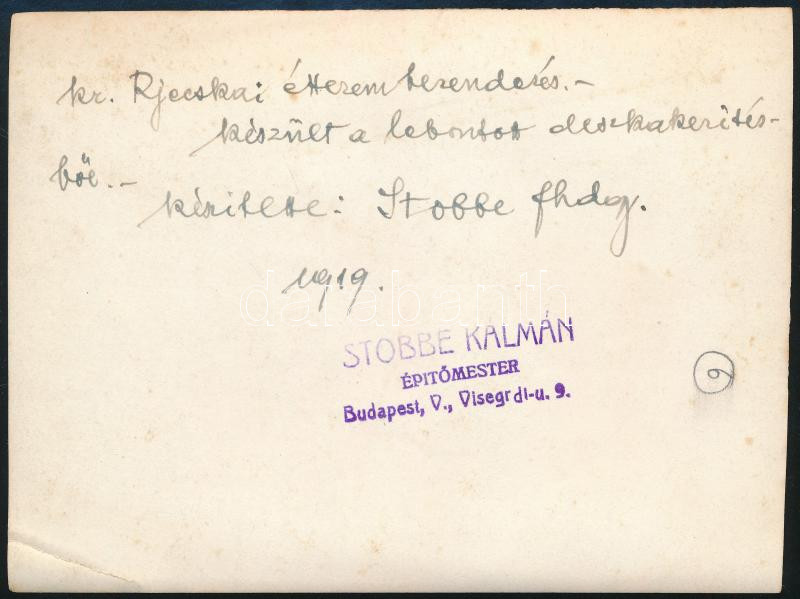 kr. Rjecskai étterem berendezés.-
készült a lebontott deszkakerítés-
ből.-
készitette: Stobbe fhdgy.
1919.
STOBBE KÁLMÁN
ÉPITŐMESTER
Budapest, V., Visegrdi-u. 9.
9
darabanth